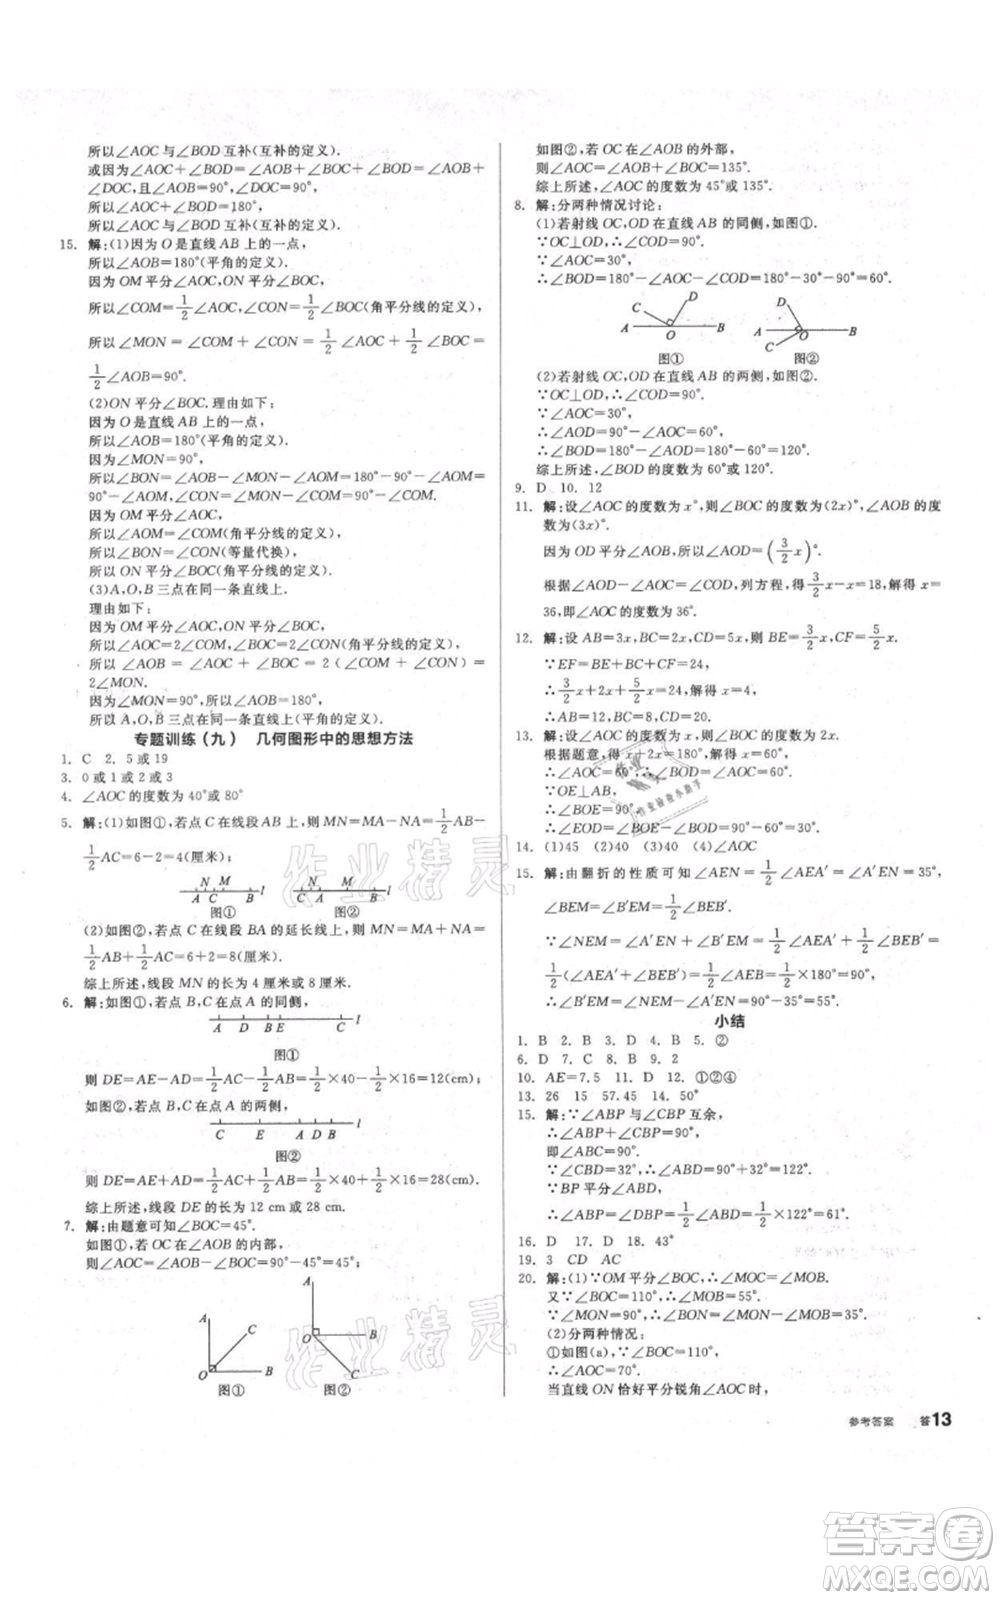 所以∠AOC与∠BOD互补(互补的定义).
或因为∠AOC+∠BOD=∠AOB+∠BOC+∠BOD=∠AOB+
∠DOC,且∠AOB=90°,∠DOC=90°,
所以∠AOC+∠BOD=180°,
所以∠AOC与∠BOD互补(互补的定义).
15. 解:(1)因为O是直线AB上的一点,
所以∠AOB=180°(平角的定义).
因为OM平分∠AOC,ON平分∠BOC,
所以∠COM=1/2∠AOC,∠CON=1/2∠BOC(角平分线的定义),
所以∠MON=∠COM+∠CON=1/2∠AOC+1/2∠BOC=
1/2∠AOB=90°.
(2)ON平分∠BOC.理由如下:
因为O是直线AB上的一点,
所以∠AOB=180°(平角的定义).
因为∠MON=90°,
所以∠BON=∠AOB-∠MON-∠AOM=180°-90°-∠AOM=
90°-∠AOM,∠CON=∠MON-∠COM=90°-∠COM.
因为OM平分∠AOC,
所以∠AOM=∠COM(角平分线的定义),
所以∠BON=∠CON(等量代换),
所以ON平分∠BOC(角平分线的定义).
(3)A,O,B三点在同一条直线上.
理由如下:
因为OM平分∠AOC,ON平分∠BOC,
所以∠AOC=2∠COM,∠BOC=2∠CON,
所以∠AOB=∠AOC+∠BOC=2(∠COM+∠CON)=
2∠MON.
因为∠MON=90°,所以∠AOB=180°,
所以A,O,B三点在同一条直线上(平角的定义).
专题训练(九) 几何图形中的思想方法
1. C 2. 5或19
3. 0或1或2或3
4. ∠AOC的度数为40°或80°
5. 解:(1)如图①,若点C在线段AB上,则MN=MA-NA=1/2AB-
1/2AC=6-2=4(厘米);
N M l
A C B
图①
N M l
C A B
图②
(2)如图②,若点C在线段BA的延长线上,则MN=MA+NA=
1/2AB+1/2AC=6+2=8(厘米).
综上所述,线段MN的长为4厘米或8厘米.
6. 解:如图①,若点B,C在点A的同侧,
A D B E C l
图①
则DE=AE-AD=1/2AC-1/2AB=1/2×40-1/2×16=12(cm);
如图②,若点B,C在点A的两侧,
C E A D B l
图②
则DE=AE+AD=1/2AC+1/2AB=1/2×40+1/2×16=28(cm).
综上所述,线段DE的长为12 cm或28 cm.
7. 解:由题意可知∠BOC=45°.
如图①,若OC在∠AOB的内部,
则∠AOC=∠AOB-∠BOC=90°-45°=45°;
A C O B
图①
A O B C
图②
如图②,若OC在∠AOB的外部,
则∠AOC=∠AOB+∠BOC=135°.
综上所述,∠AOC的度数为45°或135°.
8. 解:分两种情况讨论:
(1)若射线OC,OD在直线AB的同侧,如图①.
∵OC⊥OD,∴∠COD=90°.
∵∠AOC=30°,
∴∠BOD=180°-∠AOC-∠COD=180°-30°-90°=60°.
D C A O B
图①
D A O B C
图②
(2)若射线OC,OD在直线AB的两侧,如图②.
∵OC⊥OD,∴∠COD=90°.
∵∠AOC=30°,
∴∠AOD=60°,
∴∠BOD=180°-∠AOD=180°-60°=120°.
综上所述,∠BOD的度数为60°或120°.
9. D 10. 12
11. 解:设∠AOC的度数为x°,则∠BOC的度数为(2x)°,∠AOB的度
数为(3x)°.
因为OD平分∠AOB,所以∠AOD=(3/2x)°.
根据∠AOD-∠AOC=∠COD,列方程,得3/2x-x=18,解得x=
36,即∠AOC的度数为36°.
12. 解:设AB=3x,BC=2x,CD=5x,则BE=3/2x,CF=5/2x.
∵EF=BE+BC+CF=24,
∴3/2x+2x+5/2x=24,解得x=4,
∴AB=12,BC=8,CD=20.
13. 解:设∠AOC的度数为x,则∠AOD的度数为2x.
根据题意,得x+2x=180°,解得x=60°,
∴∠AOC=60°,∴∠BOD=∠AOC=60°.
∵OE⊥AB,
∴∠BOE=90°,
∴∠EOD=∠BOE+∠BOD=90°+60°=150°.
14. (1)45 (2)40 (3)40 (4)∠AOC
15. 解:由翻折的性质可知∠AEN=1/2∠AEA′=∠A′EN=35°,
∠BEM=∠B′EM=1/2∠BEB′.
∵∠NEM=∠A′EN+∠B′EM=1/2∠AEA′+1/2∠BEB′=
1/2(∠AEA′+∠BEB′)=1/2∠AEB=1/2×180°=90°,
∴∠B′EM=∠NEM-∠A′EN=90°-35°=55°.
小结
1. B 2. B 3. D 4. B 5. ②
6. D 7. C 8. B 9. 2
10. AE=7.5 11. D 12. ①②④
13. 26 15 57.45 14. 50°
15. 解:∵∠ABP与∠CBP互余,
∴∠ABP+∠CBP=90°,
即∠ABC=90°.
∵∠CBD=32°,∴∠ABD=90°+32°=122°.
∵BP平分∠ABD,
∴∠ABP=∠DBP=1/2∠ABD=1/2×122°=61°.
16. D 17. D 18. 43°
19. 3 CD AC
20. 解:(1)∵OM平分∠BOC,∴∠MOC=∠MOB.
又∵∠BOC=110°,∴∠MOB=55°.
∵∠MON=90°,∴∠BON=∠MON-∠MOB=35°.
(2)分两种情况:
①如图(a),∵∠BOC=110°,
∴∠AOC=70°.
当直线ON恰好平分锐角∠AOC时,
参考答案 答13
作业精灵
作业精灵
作业检查小助手
答案卷
MXQE.COM